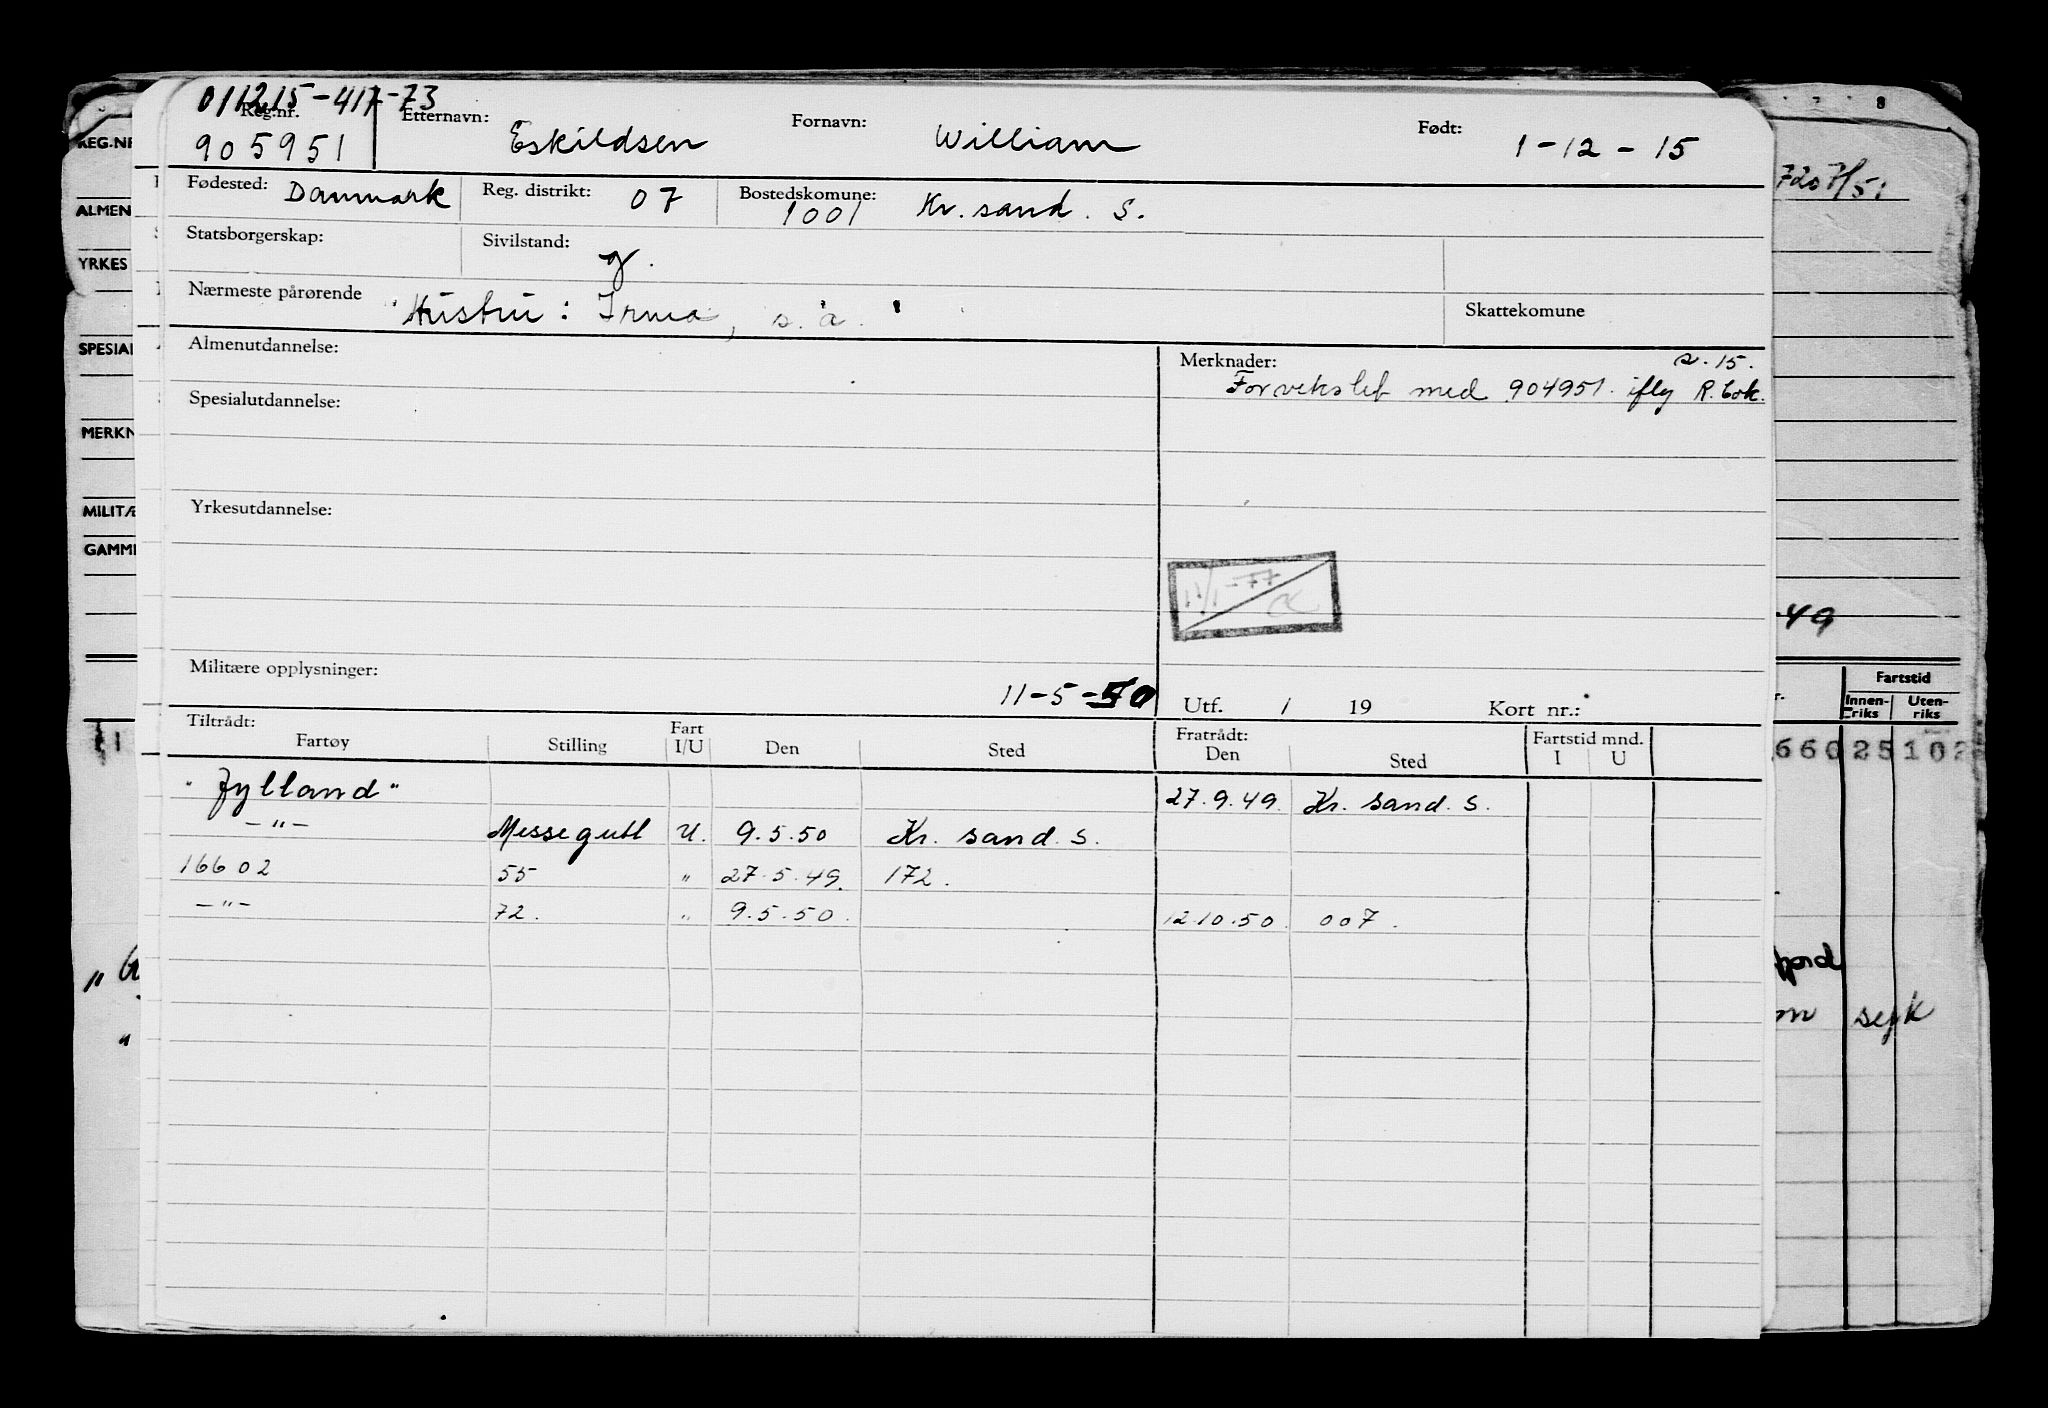 011215-417-73
Reg.nr. 905951 Etternavn: Eskildsen Fornavn: William Født: 1-12-15
Fødested: Danmark Reg. distrikt: 07 Bostedskomune: 1001 Kr.sand. S.
Statsborgerskap: Sivilstand: g.
Nærmeste pårørende Hustru: Irma, s.a. Skattekomune
Almenutdannelse: Merknader: s.15.
Forvekslet med 904951. iflg R.bok.
Spesialutdannelse:
Yrkesutdannelse:
11/1-77
Militære opplysninger: 11-5-50 Utf. / 19 Kort nr.:
Tiltrådt: Fratrådt:
Fartøy Stilling Fart I/U Den Sted Den Sted Fartstid mnd. I U
"Jylland" 27.9.49. Kr. sand. S.
-"- Messegutt U. 9.5.50 Kr. sand. S.
16602 55 " 27.5.49. 172.
-"- 72. " 9.5.50. 12.10.50. 007.
REG.NR
ALMEN
YRKES
SPESIAL
MERKN
MILITÆ
GAMM
8
-49
Fartstid
Innen-riks Uten-riks
660 25 102
fjord
on sejk